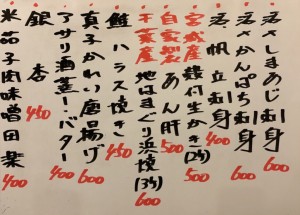 活〆しまあじ刺身 600
活〆かんぱち刺身 600
活帆立刺身 400
宮城産 殻付生かき(2ケ) 500
自家製 あん肝 500
千葉産 地はまぐり浜焼(3ケ) 600
鮭ハラス焼き 450
真子かれい唐揚げ 600
アサリ酒蒸し・バター 400
銀杏 450
米茄子肉味噌田楽 400